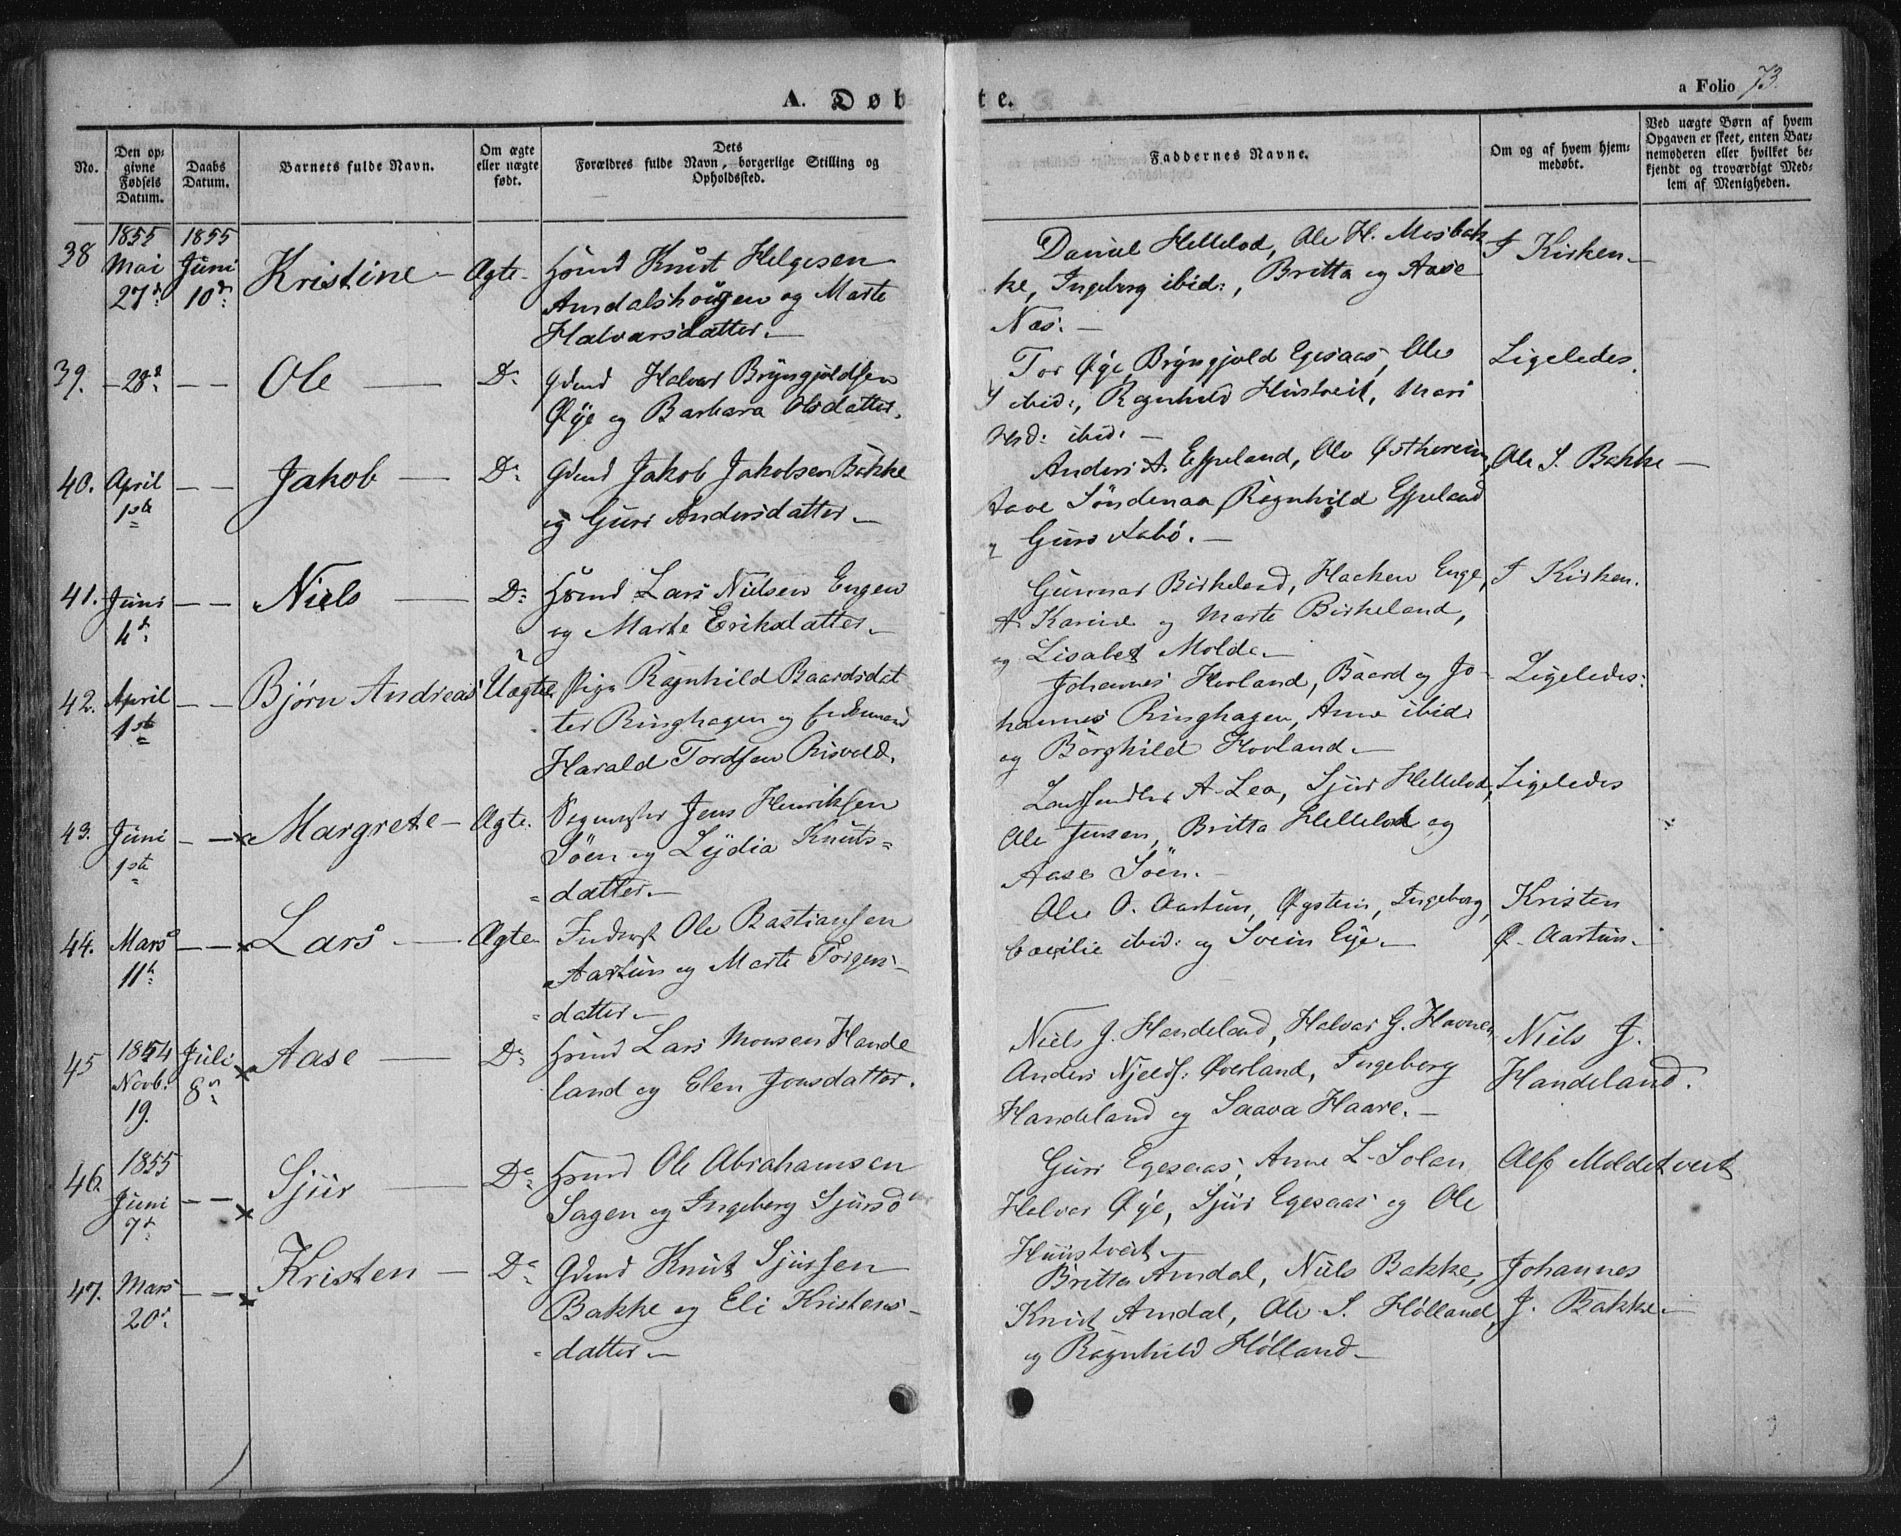 A. Døbte.
a Folio 73.
No.
Den op-
givne
Fødsels
Datum.
Daabs
Datum.
Barnets fulde Navn.
Om ægte
eller uægte
født.
Dets
Forældres fulde Navn, borgerlige Stilling og
Opholdssted.
Faddernes Navne.
Om og af hvem hjem-
medøbt.
Ved uægte Børn af hvem
Opgaven er skeet, enten Bar-
nemoderen eller hvilket be-
kjendt og troværdigt Med-
lem af Menigheden.
38 1855 Mai 27d: 1855 Juni 10d: Kristine — Ægte
Hsmd Knut Helgesen
Amdalshougen og Marte
Halvarsdatter. —
Daniel Hellelod, Ole H. Mosbak
ke, Ingeborg ibid:, Britta og Aase
Næs. —
I Kirken —
39. — 28d: — — Ole — Do
Gdmd Halvar Bryngjoldsen
Øye og Barbara Olsdatter.
Tor Øye, Bryngjold Egesaas, Ole
ibid:, Ragnhild Hustveit, Mari
ibid: —
Ligeledes.
40. April 1ste — — Jakob — Do
Gdmd Jakob Jakobsen Bakke
og Guri Andersdatter —
Anders A. Espeland, Ole Østhereim
Aave Søndenaa, Ragnhild Espeland
og Guro Aabø. —
Ole S. Bakke —
41. Juni 4d: — — Niels — Do
Hsmd Lars Nielsen Engen
og Marte Eriksdatter —
Gunnar Birkeland, Haaken Enge,
A. Karine og Marte Birkeland,
og Lisabet Molde —
I Kirken.
42. April 1ste — — Bjørn Andreas Uægte
Pige Ragnhild Baardsdat
ter Ringhagen og
Harald Tordsen Risvold.
Johannes Hovland, Baard og Jo-
hannes Ringhagen, Anne ibid:
og Borghild Hovland —
Ligeledes:
43. Juni 1ste — — x Margrete — Ægte.
Vegmester Jens Henriksen
Söen og Lydia Knuts=
datter —
A. Lea, Sjur Hellelod,
Ole Jensen, Britta Hellelod og
Aase Söen. —
Ligeledes
44. Mars 11te — — x Lars — Ægte
Inderst Ole Bastiansen
Aartun og Marte Torgers-
datter —
Ole O. Aartun, Øystein, Ingeborg,
Cecilie ibid: og Svein Eye —
Kristen
O. Aartun —
45 1854 Novb. 19. Juli 8de x Aase — Do
Hsmd Lars Monsen Hande
land og Elen Jonsdatter.
Niels J. Handeland, Halvar G. Havnen
Anders Njelds: Øverland, Ingeborg
Handeland og Saava Haare. —
Niels J.
Handeland.
46. 1855 Juni 7d: — — x Sjur — Do
Hsmd Ole Abrahamsen
Sagen og Ingeborg Sjursd
Guri Egesaas, Anne L. Solen
Halvar Øye, Sjur Egesaas og Ole
Huustveit —
Alf Moldetveit
47. Mars 20d: — — x Kristen — Do
Gdmd Knut Sjursen
Bakke og Eli Kristens-
datter —
Britta Amdal, Niels Bakke,
Knut Amdal, Ole S. Hølland,
og Ragnhild Hølland —
Johannes
J. Bakke —